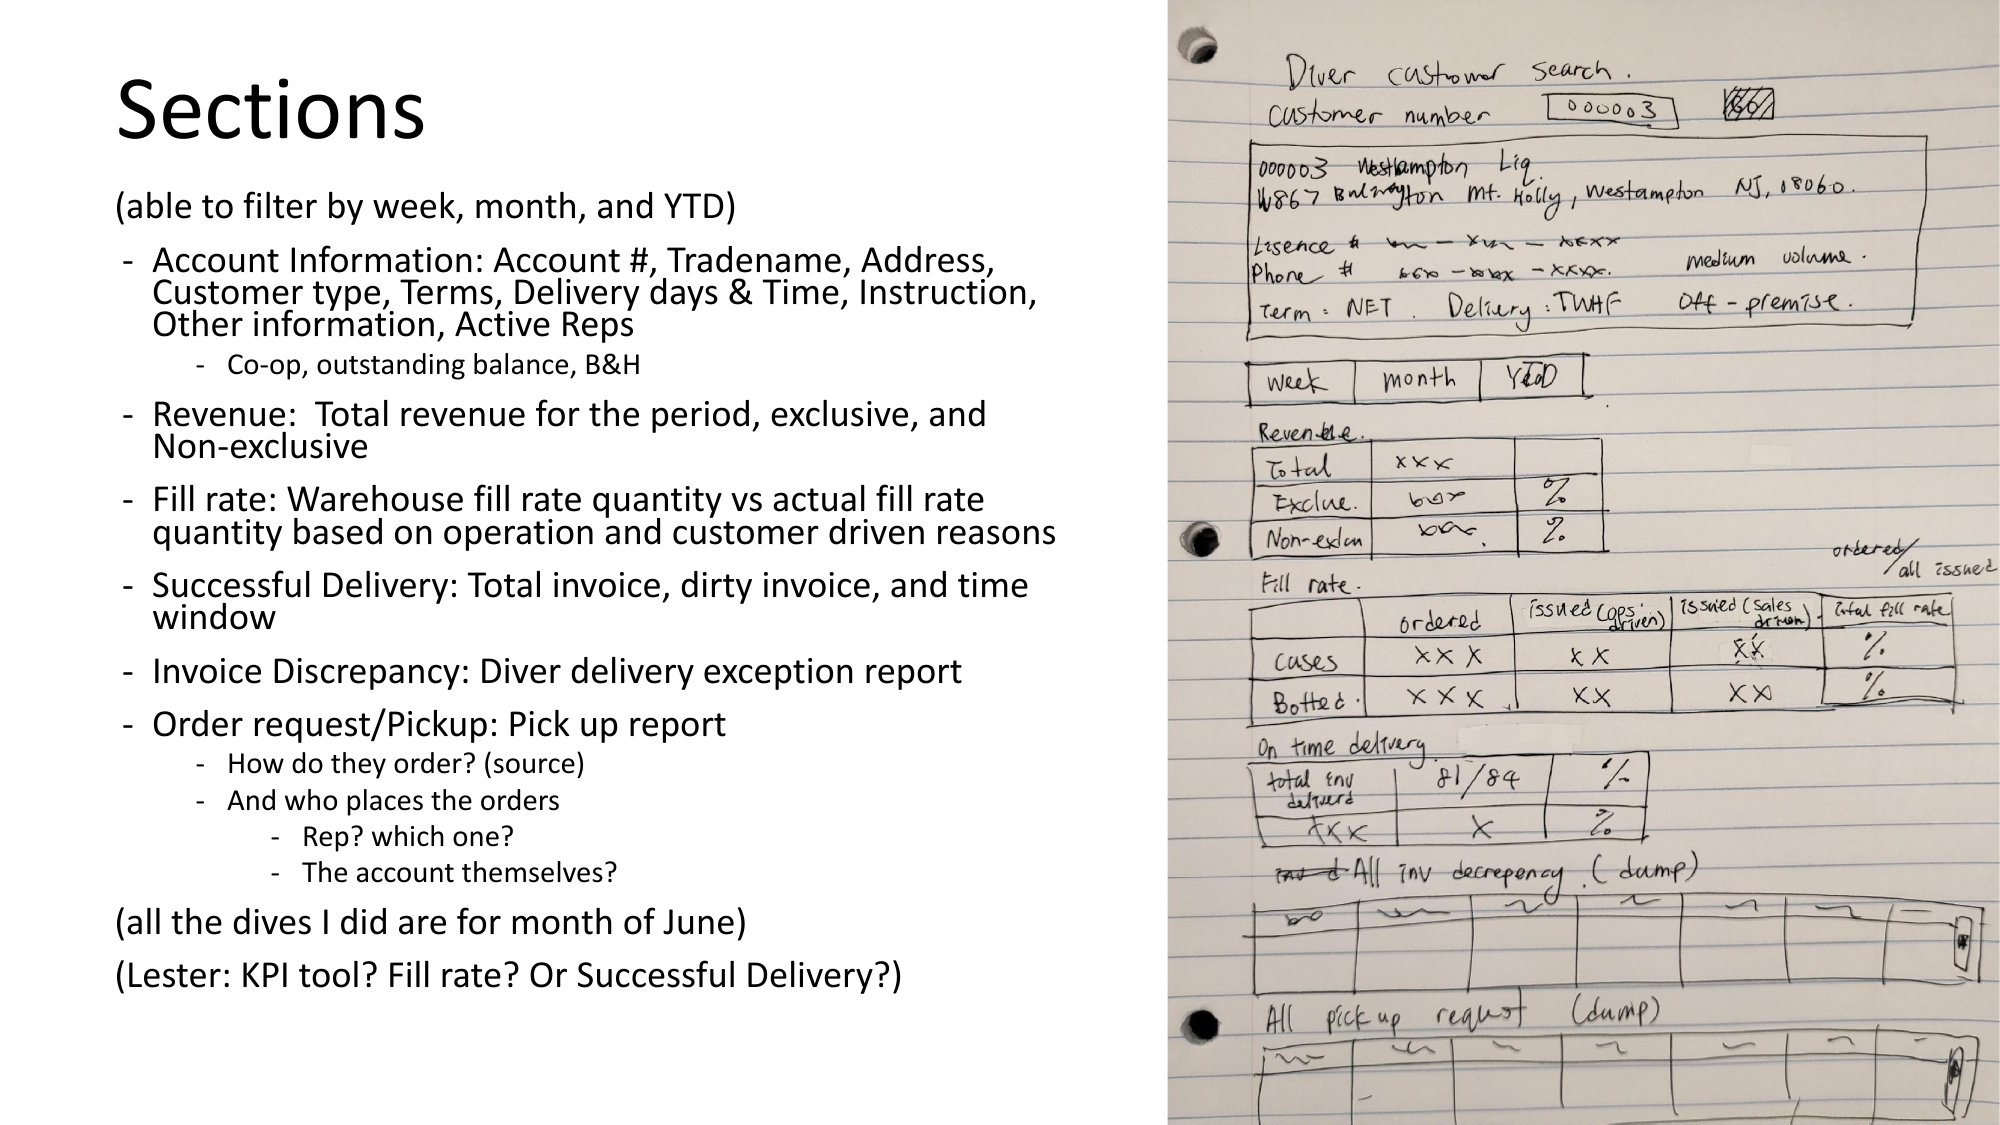 Sections
(able to filter by week, month, and YTD)
- Account Information: Account #, Tradename, Address,
Customer type, Terms, Delivery days & Time, Instruction,
Other information, Active Reps
- Co-op, outstanding balance, B&H
- Revenue: Total revenue for the period, exclusive, and
Non-exclusive
- Fill rate: Warehouse fill rate quantity vs actual fill rate
quantity based on operation and customer driven reasons
- Successful Delivery: Total invoice, dirty invoice, and time
window
- Invoice Discrepancy: Diver delivery exception report
- Order request/Pickup: Pick up report
- How do they order? (source)
- And who places the orders
- Rep? which one?
- The account themselves?
(all the dives I did are for month of June)
(Lester: KPI tool? Fill rate? Or Successful Delivery?)
Diver customer search.
Customer number 000003 GO
000003 Westhampton Liq.
W867 Mt. Holly, Westampton NJ, 08060.
Lisence #
Phone # - xxxx. medium volume.
Term: NET. Delivery: TWHF Off-premise.
week month YTD
Revenue.
Total xxx
Exclue. %
Non-exlu %
ordered/
all issued
Fill rate.
ordered issued (ops driven) issued (sales driven) total fill rate
Cases xxx xx xx %
Botted. xxx xx xx %
On time delivery
total inv 81/84 %
deliverd
xxx x %
All inv decrepency. (dump)
All pick up request (dump)